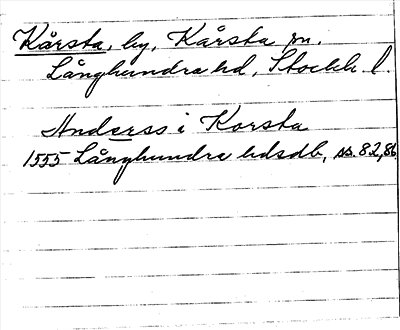 Kårsta, by, Kårsta sn.
Långhundra hd, Stockh. l.
Anderss i Korsta
1555 Långhundra hdsdb, ss. 82, 86.